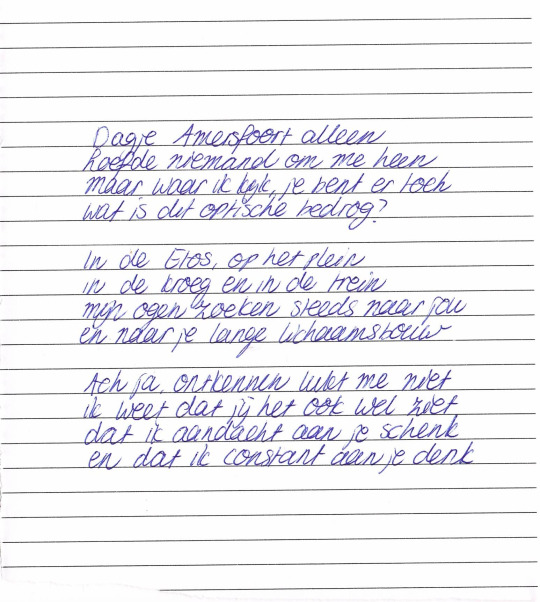 Dagje Amersfoort alleen
hoefde niemand om me heen
maar waar ik kijk, je bent er toch
wat is dit optische bedrog?
In de Etos, op het plein
in de kroeg en in de trein
mijn ogen zoeken steeds naar jou
en naar je lange lichaamsbouw
Ach ja, ontkennen lukt me niet
ik weet dat jij het ook wel ziet
dat ik aandacht aan je schenk
en dat ik constant aan je denk